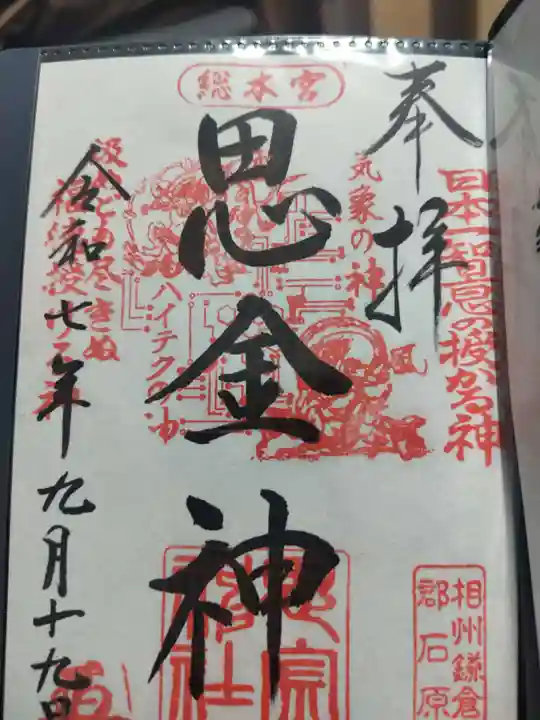 奉拝
日本一智恵の授かる神
総本宮
気象の神
思金神
ハイテクの神
汲めども尽きぬ
令和七年九月十九日
相州鎌倉
郡石原